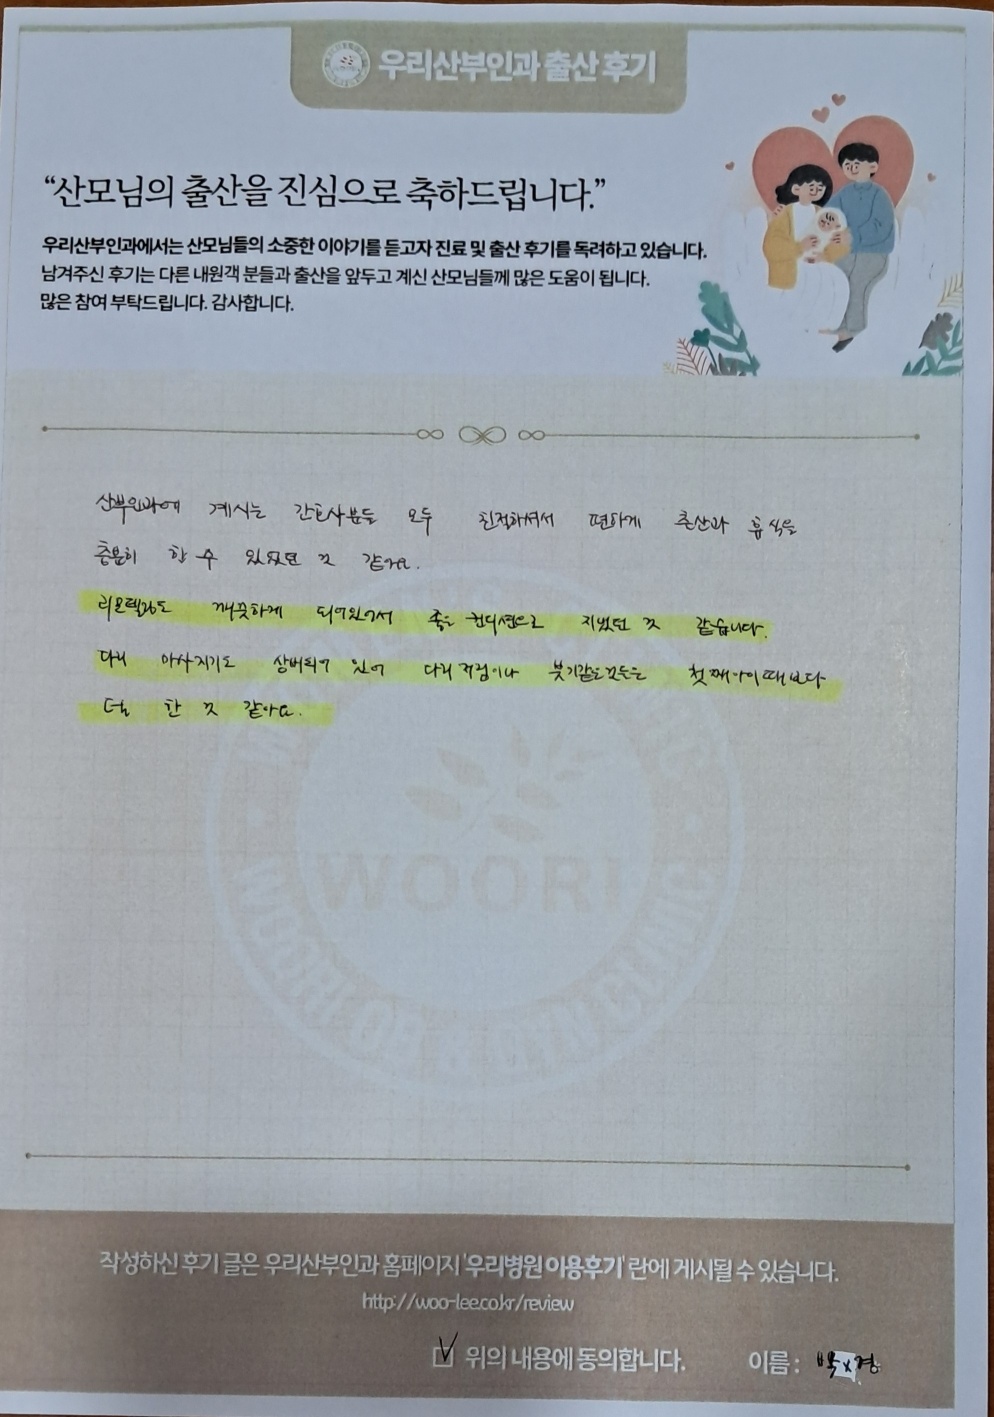 우리산부인과 출산 후기
“산모님의 출산을 진심으로 축하드립니다.”
우리산부인과에서는 산모님들의 소중한 이야기를 듣고자 진료 및 출산 후기를 독려하고 있습니다.
남겨주신 후기는 다른 내원객 분들과 출산을 앞두고 계신 산모님들께 많은 도움이 됩니다.
많은 참여 부탁드립니다. 감사합니다.
산부인과에 계시는 간호사분들 모두 친절하셔서 편하게 출산과 휴식을
충분히 할 수 있었던 것 같아요.
깨끗하게 되어있어서 좋은 컨디션으로 지냈던 것 같습니다.
다리 마사지기도 상비되어 있어 다리 저림이나 붓기같은것들은 첫째아이때보다
덜 한 것 같아요.
WOORI
작성하신 후기 글은 우리산부인과 홈페이지 '우리병원 이용후기' 란에 게시될 수 있습니다.
http://woo-lee.co.kr/review
위의 내용에 동의합니다. 이름 : 박x경